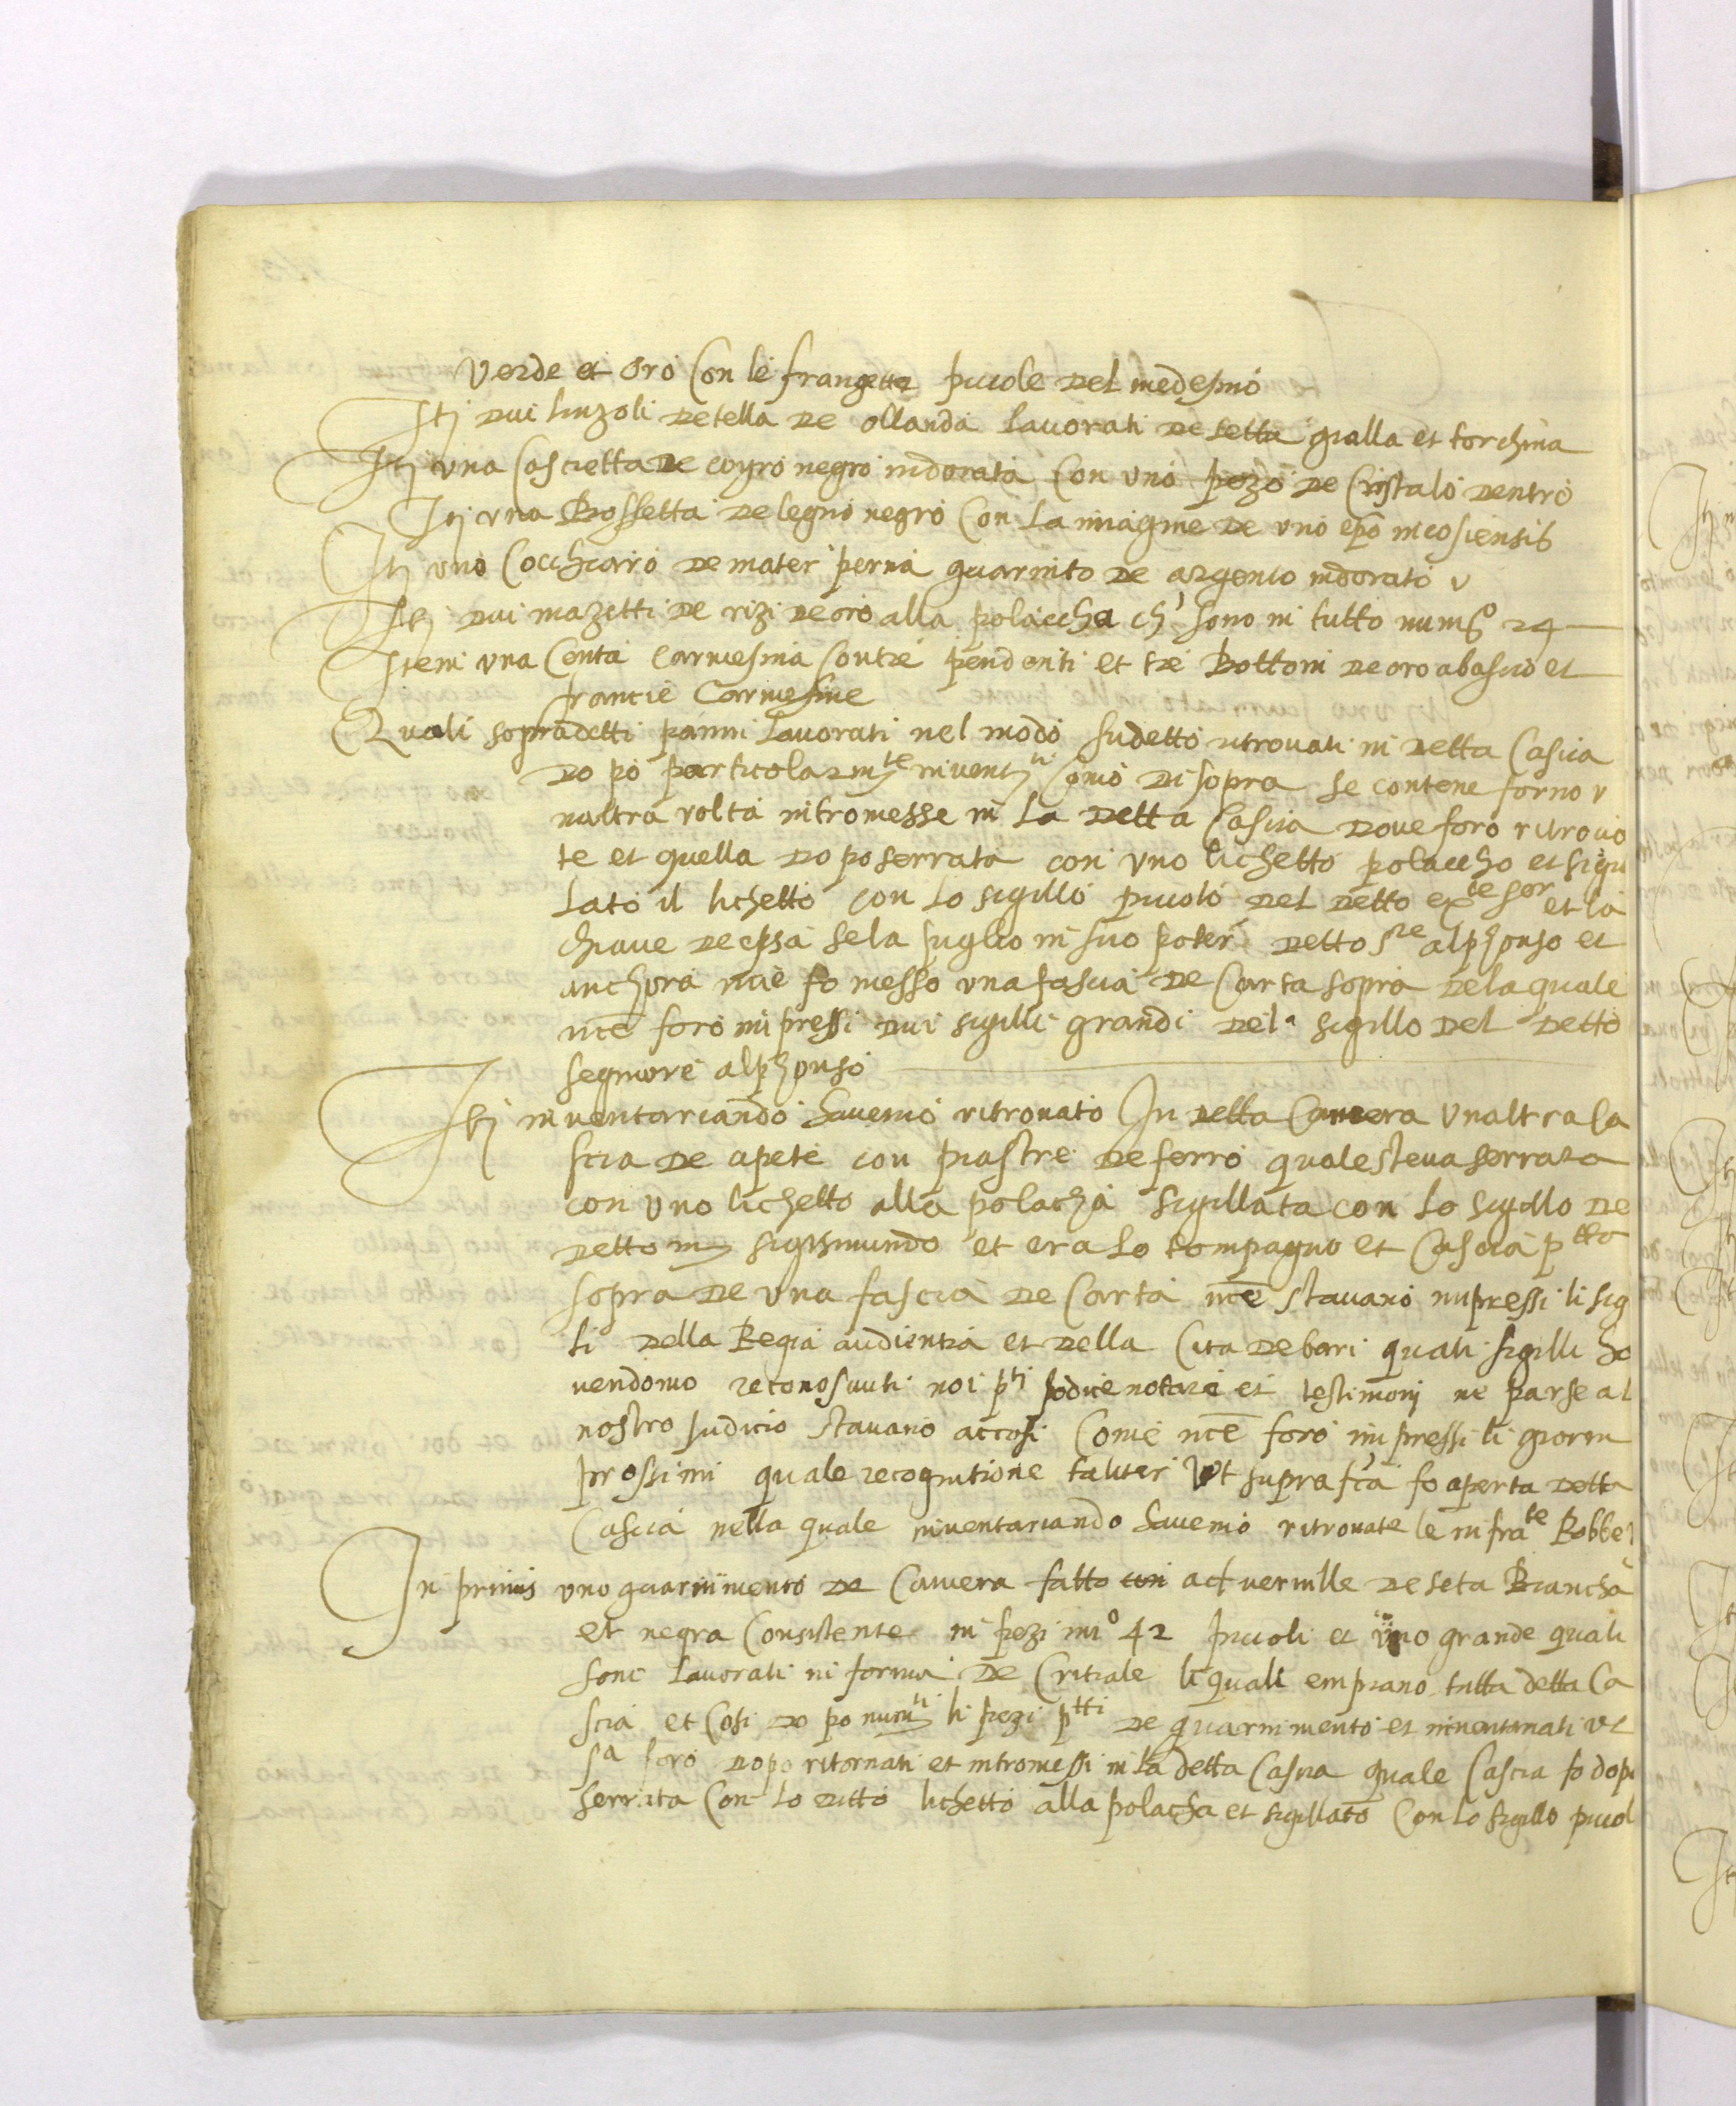 verde et oro con le frangette picole del medesmo
Itj dui linzoli de tella de ollanda lavorati de setta gialla et torchina
Itj una cascietta de coyro negro indorata con uno pezo de cristalo dentro
Itj una Bossetta de legno negro con la imagine de uno epo nicosiensis
Itj uno cocchiaro de mater perna guarnito de argento indorato v
Itj dui mazetti de rizi de oro alla polaccha ch' sono in tutto num.o 24
Item una centa carmesina con tre pendenti et tre Bottoni de oro abascio et
francie carmesine
Quali sopradetti panni lavorati nel modo sudetto ritrovati in detta cascia
do po particolarm.te invent.ti como di sopra se contene forno v
naltra volta intromesse in la detta cascia dove foro ritrova
te et quella do po serrata con uno lichetto polaccho et sigil
lato il lichetto con lo sigillo picolo del detto ex.te s.or et la
chiave de epsa se la piglio in suo poter' detto s.re alphonso et
anchora nce fo messo una fascia de carta sopra dela quale
nce foro impressi dui sigilli grandi del sigillo del detto
segniore alphonso
Itj inventariando havemo ritrovato In detta camera unaltra ca
scia de apete con piastre de ferro quale steva serrata
con uno lichetto alla polacha sigillata con lo sigillo de
detto m. sigismundo et era lo compagno et cascia p.tto
sopra de una fascia de carta nce stavano impressi li sig
li della Regia audientia et della cita de bari quali sigilli ha
vendomo reconosciuti noi p.ti iodice notare et testimonj ne parse al
nostro iudicio stavano accosi come nce foro impressi li giorni
prossimi quale recognitione taliter ut supra fca fo aperta detta
cascia nella quale inventariando havemo ritrovate le infra.te Robbe
In primis uno guarnimento de camera fatto con ad vermille de seta Biancha
et negra consistente in pezi n.o 42 picioli et uno grande quali
sono lavorati in forma de critiale li quali empiano tutta detta ca
scia et cosi do po num.ti li pezi p.tti de guarnimento et inventariati ut
s.a foro dopo ritornati et intromessi in la detta cascia quale cascia fo dopo
serrata con lo ditto lichetto alla polacha et sigillato con lo sigillo picol